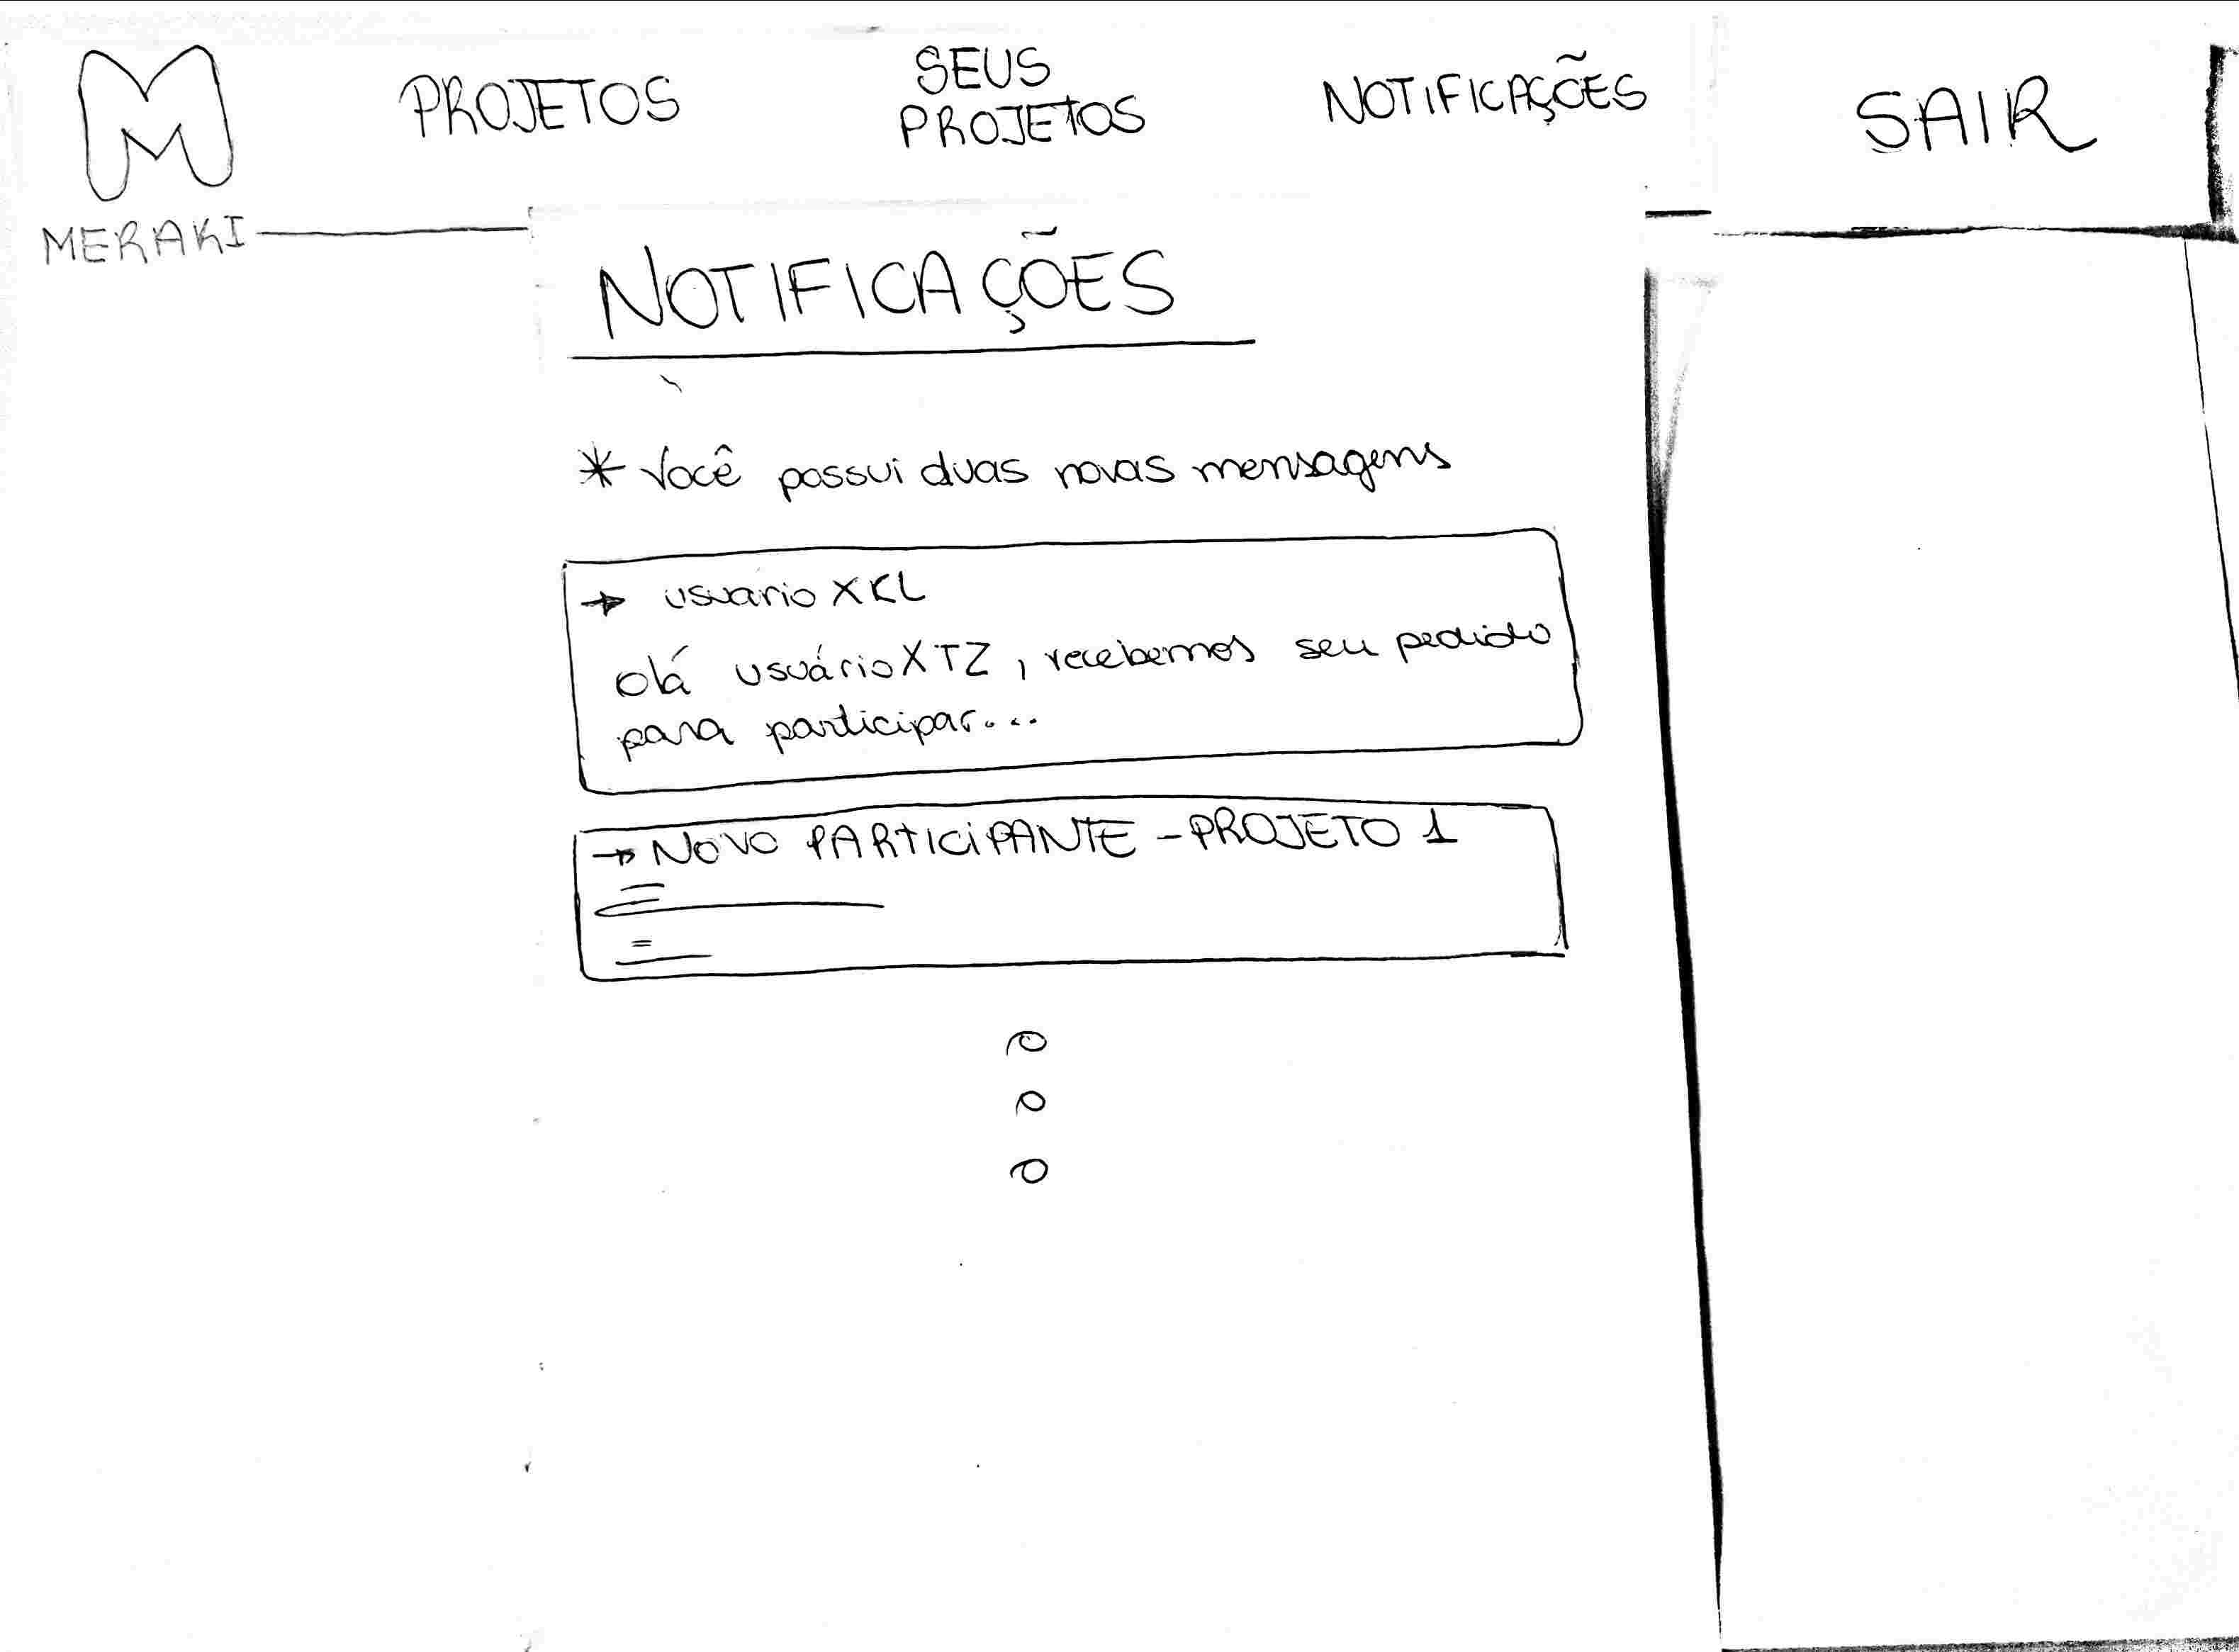 M
MERAKI
PROJETOS
SEUS
PROJETOS
NOTIFICAÇÕES
SAIR
NOTIFICAÇÕES
* Você possui duas novas mensagens
→ usuario XKL
Olá usuário XTZ, recebemos seu pedido
para participar...
→ NOVO PARTICIPANTE - PROJETO 1